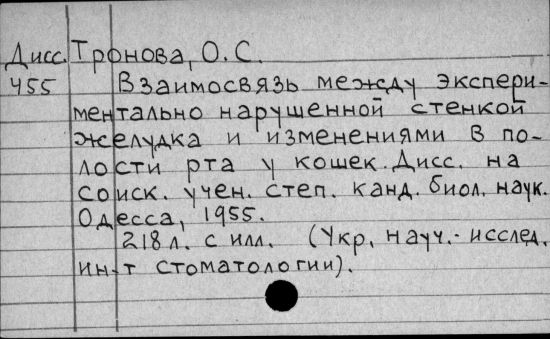 Дисс. Тронова, О.С.
455 Взаимосвязь между экспери-
ментально нарушенной стенкой
желудка и изменениями в по-
лости рта у кошек. Дисс. на
соиск. учен. степ. канд. биол. наук.
Одесса, 1955.
218 л. с илл. (Укр. науч.-исслед.
ин-т стоматологии).